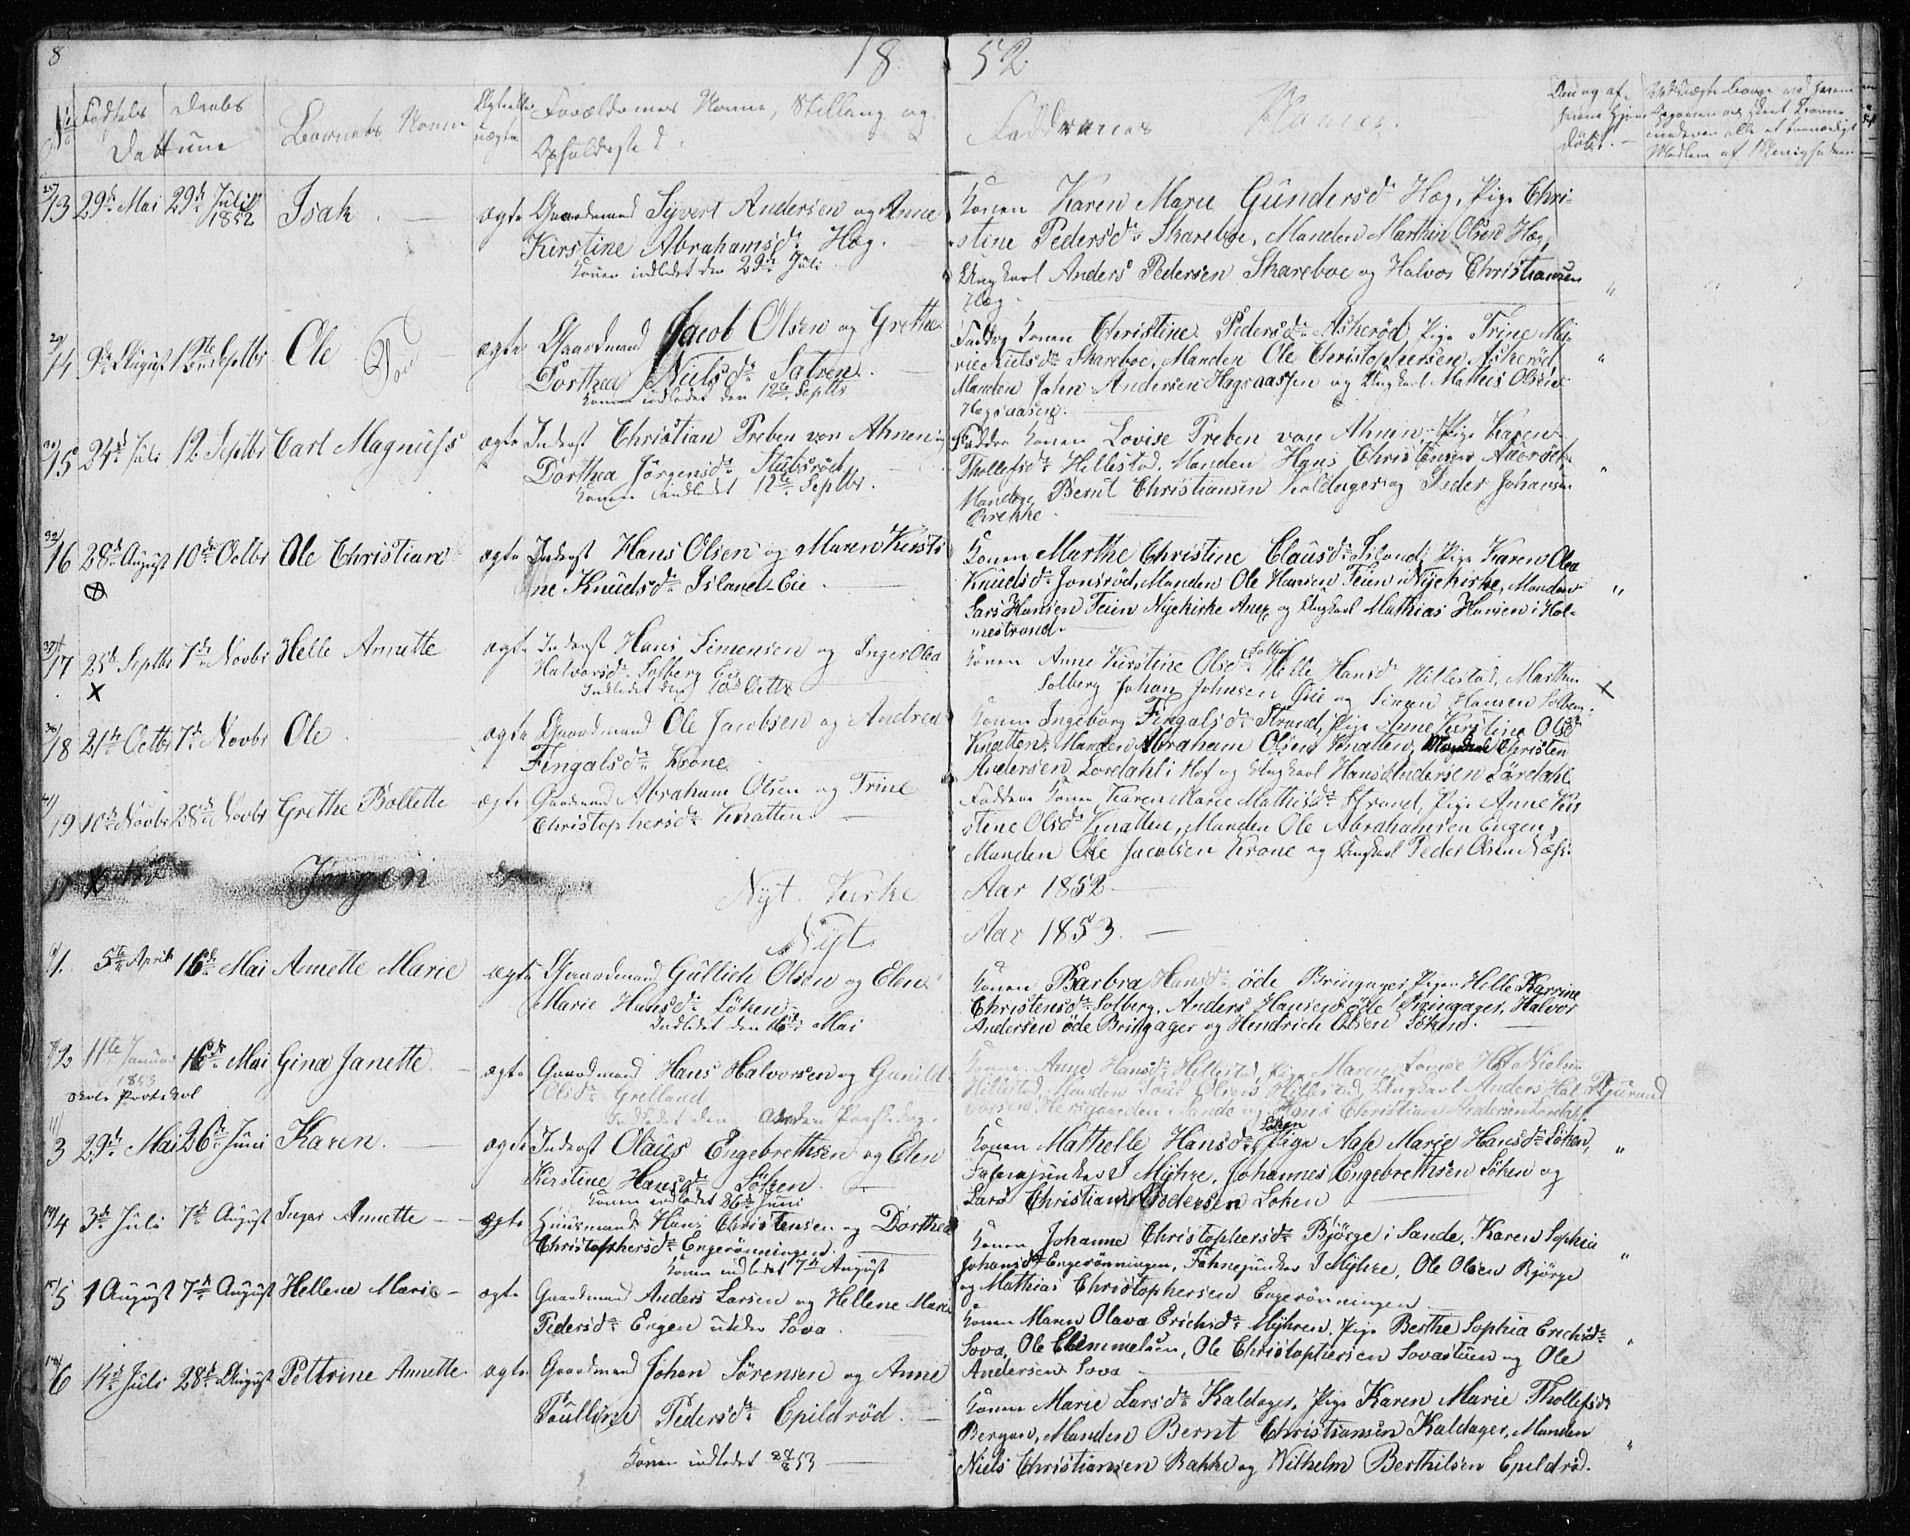 8
18 52
No Fødsels Daabs Datum
Barnets Navn
Ægte eller uægte
Forældrenes Navne, Stilling og Opholdssted.
Faddernes Navne.
13 29de Mai 29de Juli 1852 Isak ægte Gaardmand Syvert Andersen og Anne
Kirstine Abrahamsdr Hæg.
Konen indledet den 29de Juli
Konen Karen Marie Gundersdr Hæg, Pige Chri-
stine Pedersdr Skareboe, Manden Marthin Olsen Hæg,
Ungkarl Anders Pedersen Skareboe og Halvor Christiansen
Hæg
14 9de August 12te Septbr Ole Død ægte Gaardmand Jacob Olsen og Grethe
Dorthea Nielsdr Solven.
Konen indledet den 12te Septbr
Faddr Konen Christine Pedersdr Askerød, Pige Trine Ma-
rie Nielsdr Skareboe, Manden Ole Christophersen Askerød,
Manden John Andersen Hagsaassen og Ungkarl Mathis Olsen
Hagsaasen.
15 24de Juli 12 Septbr Carl Magnuss ægte Inderst Christian Preben von Ahnen og
Dorthea Jörgensdr Stubsröd
Konen indledet 12te Septbr.
Faddr Konen Lovise Preben von Ahnen, Pige Karen
Thollefsdr Hillestad, Manden Hans Christensen
Manden Bernt Christiansen Kaldager og Peder Johansen
Brekke
16 28de August 10de Octbr Ole Christian ægte Inderst Hans Olsen og Maren Kirsti
ne Knudsdr Island Eie.
Konen Marthe Christine Clausdr Island, Pige Karen Olea
Knudsdr Jonsrød, Manden Ole Hansen Teien i Nykirke, Manden
Lars Hansen Teien Nykirke Anex og Ungkarl Mathias Hansen i Hol-
mestrand.
17 25de Septbr 7de Novbr Helle Annette ægte Inderst Hans Simensen og Inger Olea
Halvorsdr Solberg Eie
Indledet den 10de Octbr
Konen Anne Kirstine Olsdr Solberg Helle Hansdr Hillestad, Marthin
Solberg Johan Johnsen Øde og Simen Hansen Solberg.
18 21de Octbr 7de Novbr Ole ægte Gaardmand Ole Jacobsen og Andrea
Fingalsdr Krone
Konen Ingeborg Fingalsdr Strand, Pige Anne Kirstine Olsdr
Knatten, Manden Abraham Olsen Knatten, Christen
Andersen Lørdahl i Hof og Ungkarl Hans Andersen Lørdahl
19 10de Novbr 28de Novbr Grethe Bollette ægte Gaardmand Abraham Olsen og Trine
Christophersdr Knatten
Faddere Konen Karen Marie Mathisdr Strand, Pige Anne Kir
stine Olsdr Knatten, Manden Ole Abrahamsen Engen,
Manden Ole Jacobsen Krone og Ungkarl Peder Olsen Næss.
Jörgen
Nyt. Kirke Aar 1852
Nyt. Aar 1853.
1. 5te April 16de Mai Annette Marie ægte Gaardmand Gullich Olsen og Elen
Marie Hansdr Söken
Indledet den 16de Mai
Konen Barbra Hansdr öde Bringager, Pigen Helle Karrine
Christensdr Solberg, Anders Hansen öde Bringager, Halvor
Andersen öde Bringager og Hendrich Olsen Söken.
2 11te Januar 1853 16de Mai Gina Janette ægte Gaardmand Hans Halvorsen og Gunild
Olsdr Grelland
Indledet den Anden Paaskedag.
Skole Protokol
Konen Anne Hansdr Hillestad, Pige Maren Lovise Nielsen
Hillestad, Manden Poul Olsen Hillestad, Ungkarl Anders Hal
vorsen i Sande og Hans Christian Andersen Lordahl
3 29de Mai 26de Juni Karen. ægte Inderst Olaus Engebrethsen og Elen
Kirstine Hansdr Söken.
Konen indledet 26de Juni
Konen Mathelle Hansdr Söken, Pige Aase Marie Hansdr Söken,
Fanejunker J Myhre, Johannes Engebrethsen Söken og
Lars Christian Pedersen Soken
4 3de Juli 7de August Inger Annette ægte Huusmand Hans Christensen og Dorthea
Christophersdr Engerönningen.
Konen indledet 7de August
Konen Johanne Christophersdr Bjørge i Sande, Karen Sophia
Johansdr Engerönningen, Fahnejunker J Myhre, Ole Olsen Bjørge
og Mathias Christophersen Engerönningen
5 1 August 7de August Hellene Marie ægte Gaardmand Anders Larsen og Hellene Marie
Pedersdr Engen under Sova.
Konen Maren Olava Erichsdr Myhren, Pige Berthe Sophia Erichsdr
Sova, Ole Clemmetsen, Ole Christophersen Sovastuen og Ole
Andersen Sova
6 14de Juli 28de August Pettrine Annette ægte Gaardmand Johan Sörensen og Anne
Paulline Pedersdr Epildröd.
Konen indledet 28/8 53
Konen Marie Larsdr Kaldager, Pige Karen Marie Thollefsdr
Bergan, Manden Bernt Christiansen Kaldager, Manden
Niels Christiansen Bakke og Wilhelm Berthilsen Epildröd.